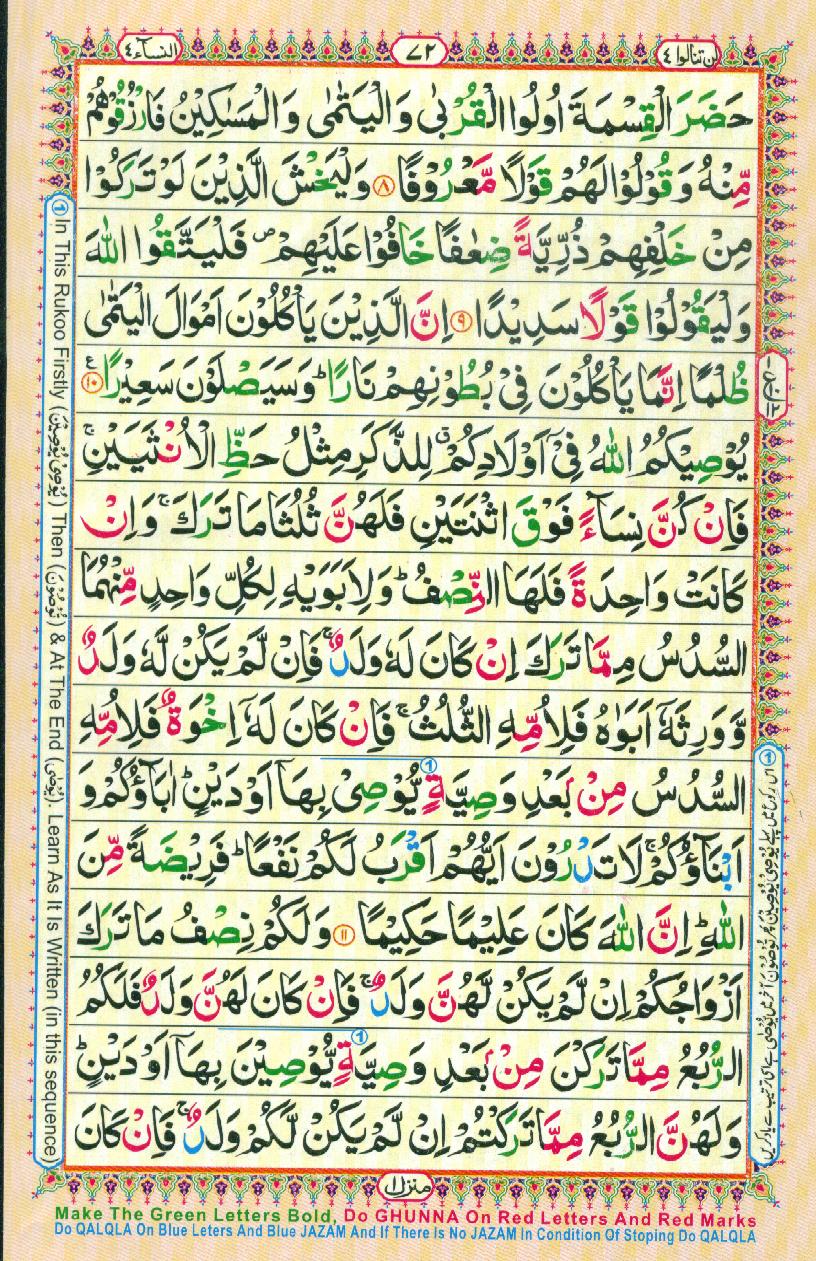 لن تنالوا ٤
٧٢
النسآء ٤
حَضَرَ الْقِسْمَةَ اُولُوا الْقُرْبٰى وَالْيَتٰمٰى وَالْمَسٰكِيْنُ فَارْزُقُوْهُمْ
مِّنْهُ وَقُوْلُوْا لَهُمْ قَوْلًا مَّعْرُوْفًا ۝٨ وَلْيَخْشَ الَّذِيْنَ لَوْ تَرَكُوْا
مِنْ خَلْفِهِمْ ذُرِّيَّةً ضِعٰفًا خَافُوْا عَلَيْهِمْ ۪ فَلْيَتَّقُوا اللّٰهَ
وَلْيَقُوْلُوْا قَوْلًا سَدِيْدًا ۝٩ اِنَّ الَّذِيْنَ يَاْكُلُوْنَ اَمْوَالَ الْيَتٰمٰى
ظُلْمًا اِنَّمَا يَاْكُلُوْنَ فِىْ بُطُوْنِهِمْ نَارًا ؕ وَسَيَصْلَوْنَ سَعِيْرًا ۝١٠
يُوْصِيْكُمُ اللّٰهُ فِىْۤ اَوْلَادِكُمْ ۗ لِلذَّكَرِ مِثْلُ حَظِّ الْاُنْثَيَيْنِ ۚ
فَاِنْ كُنَّ نِسَآءً فَوْقَ اثْنَتَيْنِ فَلَهُنَّ ثُلُثَا مَا تَرَكَ ۚ وَاِنْ
كَانَتْ وَاحِدَةً فَلَهَا النِّصْفُ ؕ وَلِاَبَوَيْهِ لِكُلِّ وَاحِدٍ مِّنْهُمَا
السُّدُسُ مِمَّا تَرَكَ اِنْ كَانَ لَهٗ وَلَدٌ ۚ فَاِنْ لَّمْ يَكُنْ لَّهٗ وَلَدٌ
وَّوَرِثَهٗۤ اَبَوٰهُ فَلِاُمِّهِ الثُّلُثُ ۚ فَاِنْ كَانَ لَهٗۤ اِخْوَةٌ فَلِاُمِّهِ
السُّدُسُ مِنْۢ بَعْدِ وَصِيَّةٍ يُّوْصِىْ بِهَاۤ اَوْ دَيْنٍ ؕ اٰبَآؤُكُمْ وَ
اَبْنَآؤُكُمْ ۚ لَا تَدْرُوْنَ اَيُّهُمْ اَقْرَبُ لَكُمْ نَفْعًا ؕ فَرِيْضَةً مِّنَ
اللّٰهِ ؕ اِنَّ اللّٰهَ كَانَ عَلِيْمًا حَكِيْمًا ۝١١ وَلَكُمْ نِصْفُ مَا تَرَكَ
اَزْوَاجُكُمْ اِنْ لَّمْ يَكُنْ لَّهُنَّ وَلَدٌ ۚ فَاِنْ كَانَ لَهُنَّ وَلَدٌ فَلَكُمُ
الرُّبُعُ مِمَّا تَرَكْنَ مِنْۢ بَعْدِ وَصِيَّةٍ يُّوْصِيْنَ بِهَاۤ اَوْ دَيْنٍ ؕ
وَلَهُنَّ الرُّبُعُ مِمَّا تَرَكْتُمْ اِنْ لَّمْ يَكُنْ لَّكُمْ وَلَدٌ ۚ فَاِنْ كَانَ
① In This Rukoo Firstly (يُوْصِىْ يُوْصِيْنَ) Then (تُوْصُوْنَ) & At The End (يُوْصٰى). Learn As It Is Written (in this sequence)
منزل ١
Make The Green Letters Bold, Do GHUNNA On Red Letters And Red Marks
Do QALQLA On Blue Leters And Blue JAZAM And If There Is No JAZAM In Condition Of Stoping Do QALQLA